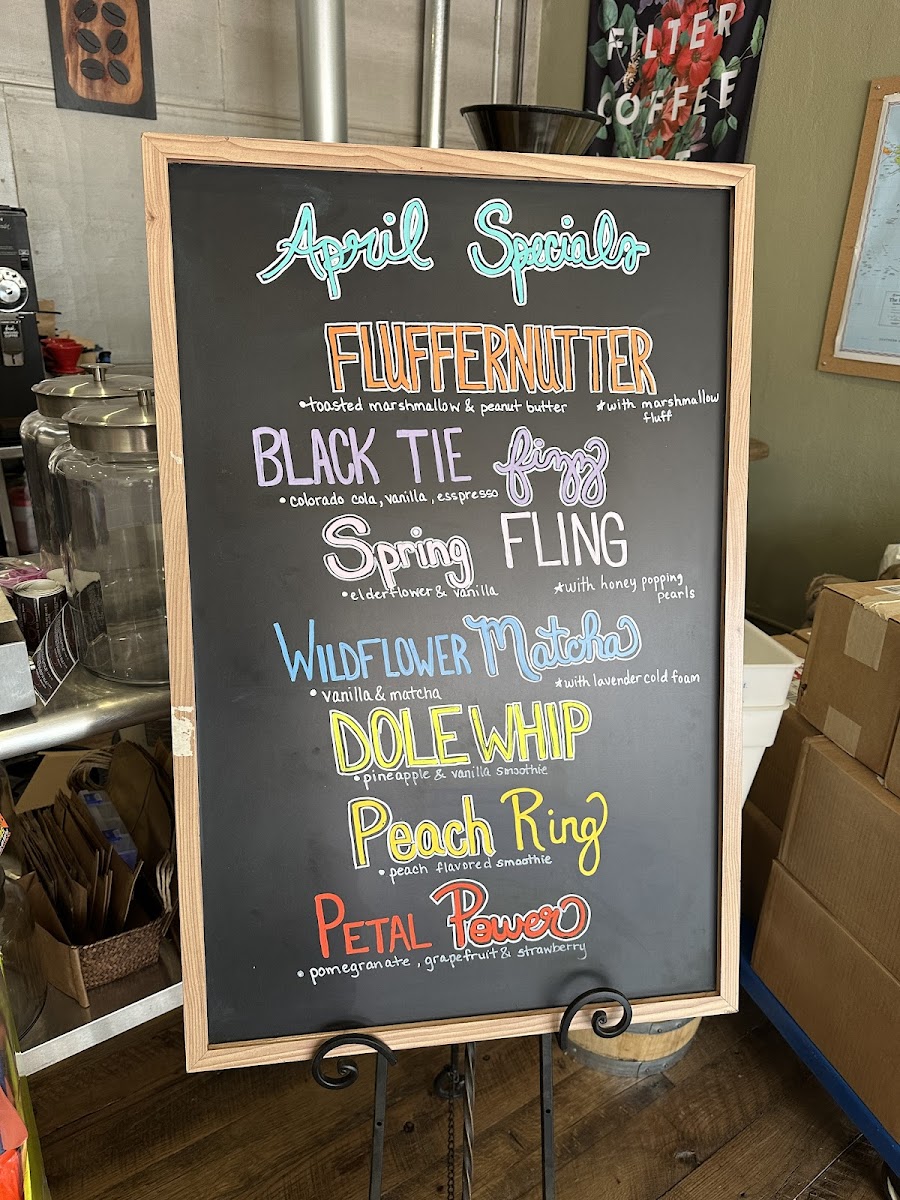 FILTER
COFFEE
April Specials
FLUFFERNUTTER
•toasted marshmallow & peanut butter *with marshmallow
fluff
BLACK TIE fizzy
•colorado cola, vanilla, esspresso
Spring FLING
•elderflower & vanilla *with honey popping
pearls
WILDFLOWER Matcha
•vanilla & matcha *with lavender cold foam
DOLE WHIP
•pineapple & vanilla smoothie
Peach Ring
•peach flavored smoothie
PETAL Power
•pomegranate, grapefruit & strawberry